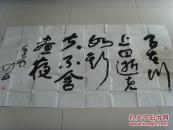 子在川
上曰逝者
如斯
夫不舍
晝夜